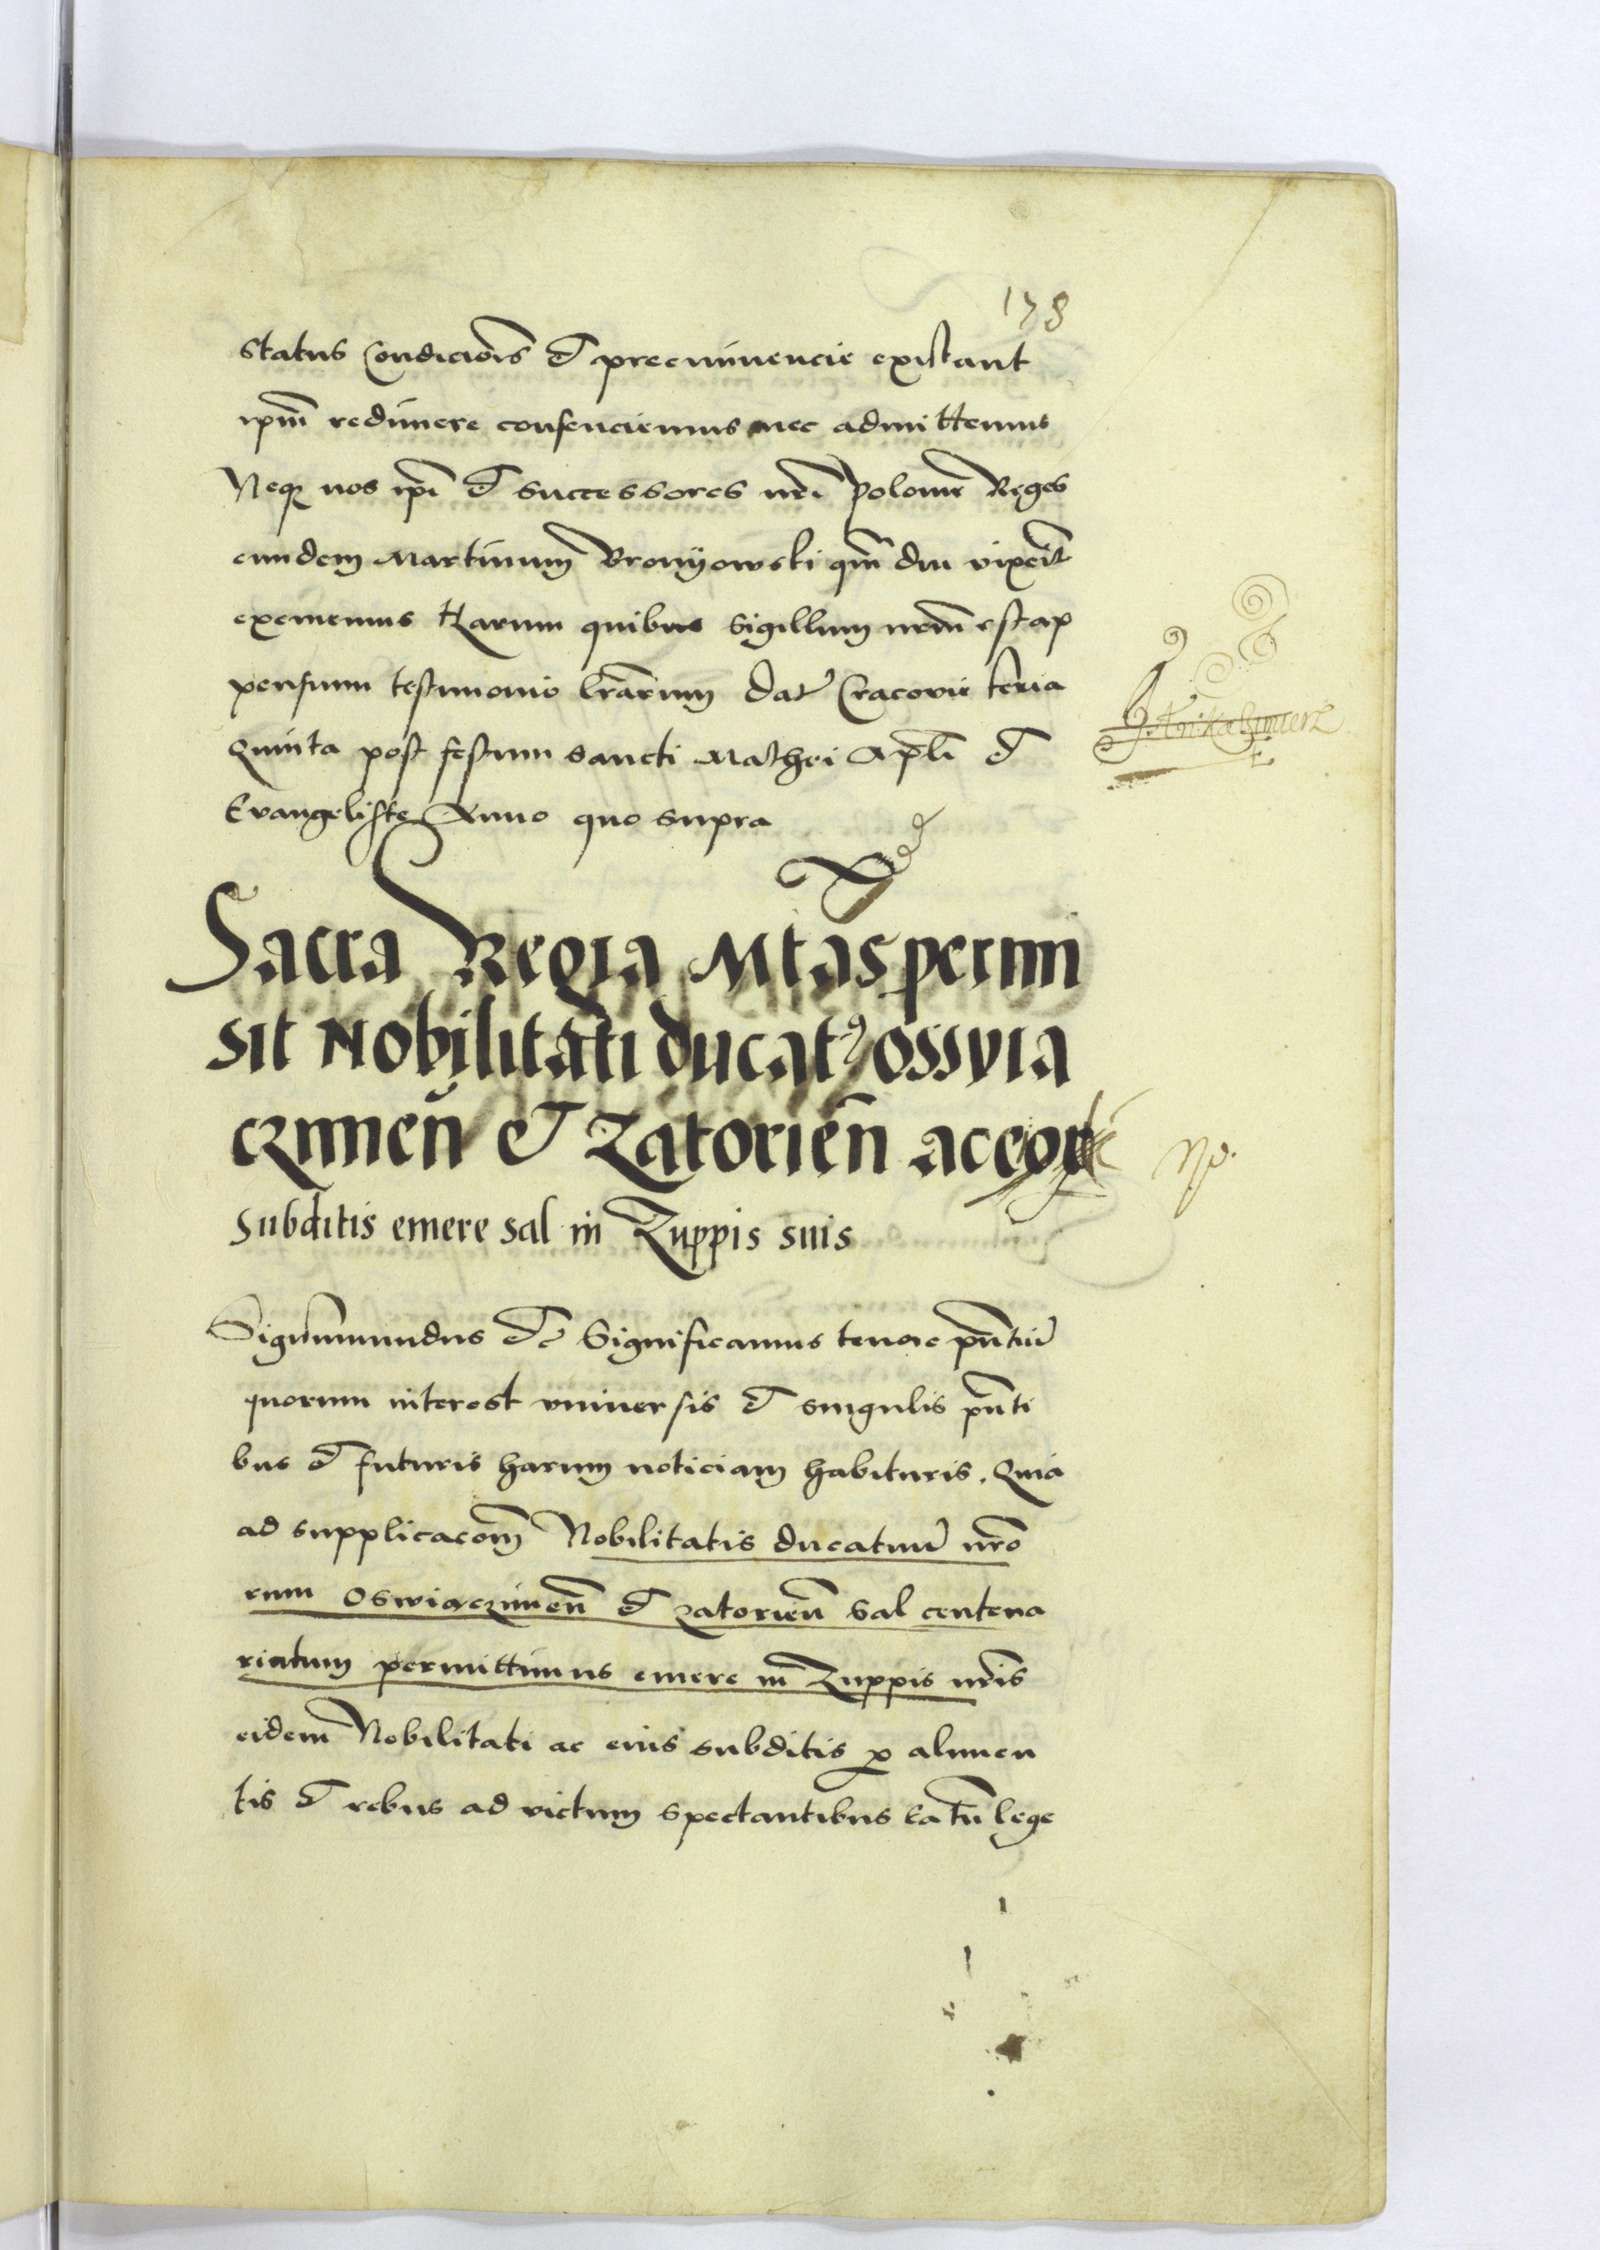 178
status Condicionis et preeminencie existant
ipm̄ redimere consenciemus nec admittemus
Neq3 nos ip̄i et successores nr̄i polonie Reges
eundem Martinum Bronyowski qm̄ diu vixerit
exememus Harum quibus Sigillum nrm̄ est ap
pensum testimonio lrārum Dat Cracovie feria
Quinta post festum sancti Mathei Apl̄i et
Evangeliste Anno quo supra
Sacra Regia Mtas permi
sit Nobilitati ducatus ossvia
czimen̄ et Zatorien̄ ac eor
subditis emere sal in Zuppis suis
Sigismundus etc Significamus tenore pn̄tiu
quorum interest vniuersis et singulis pn̄ti
bus et futuris harum noticiam habituris. Quia
ad supplicacom̄ Nobilitatis ducatuu nr̄o
rum Oswiaczimen̄ et zatorien̄ Sal centena
riatum permittimus emere in Zuppis nr̄is
eidem Nobilitati ac eius subditis p alimen
tis et rebus ad victum spectantibus Ea tn̄ lege